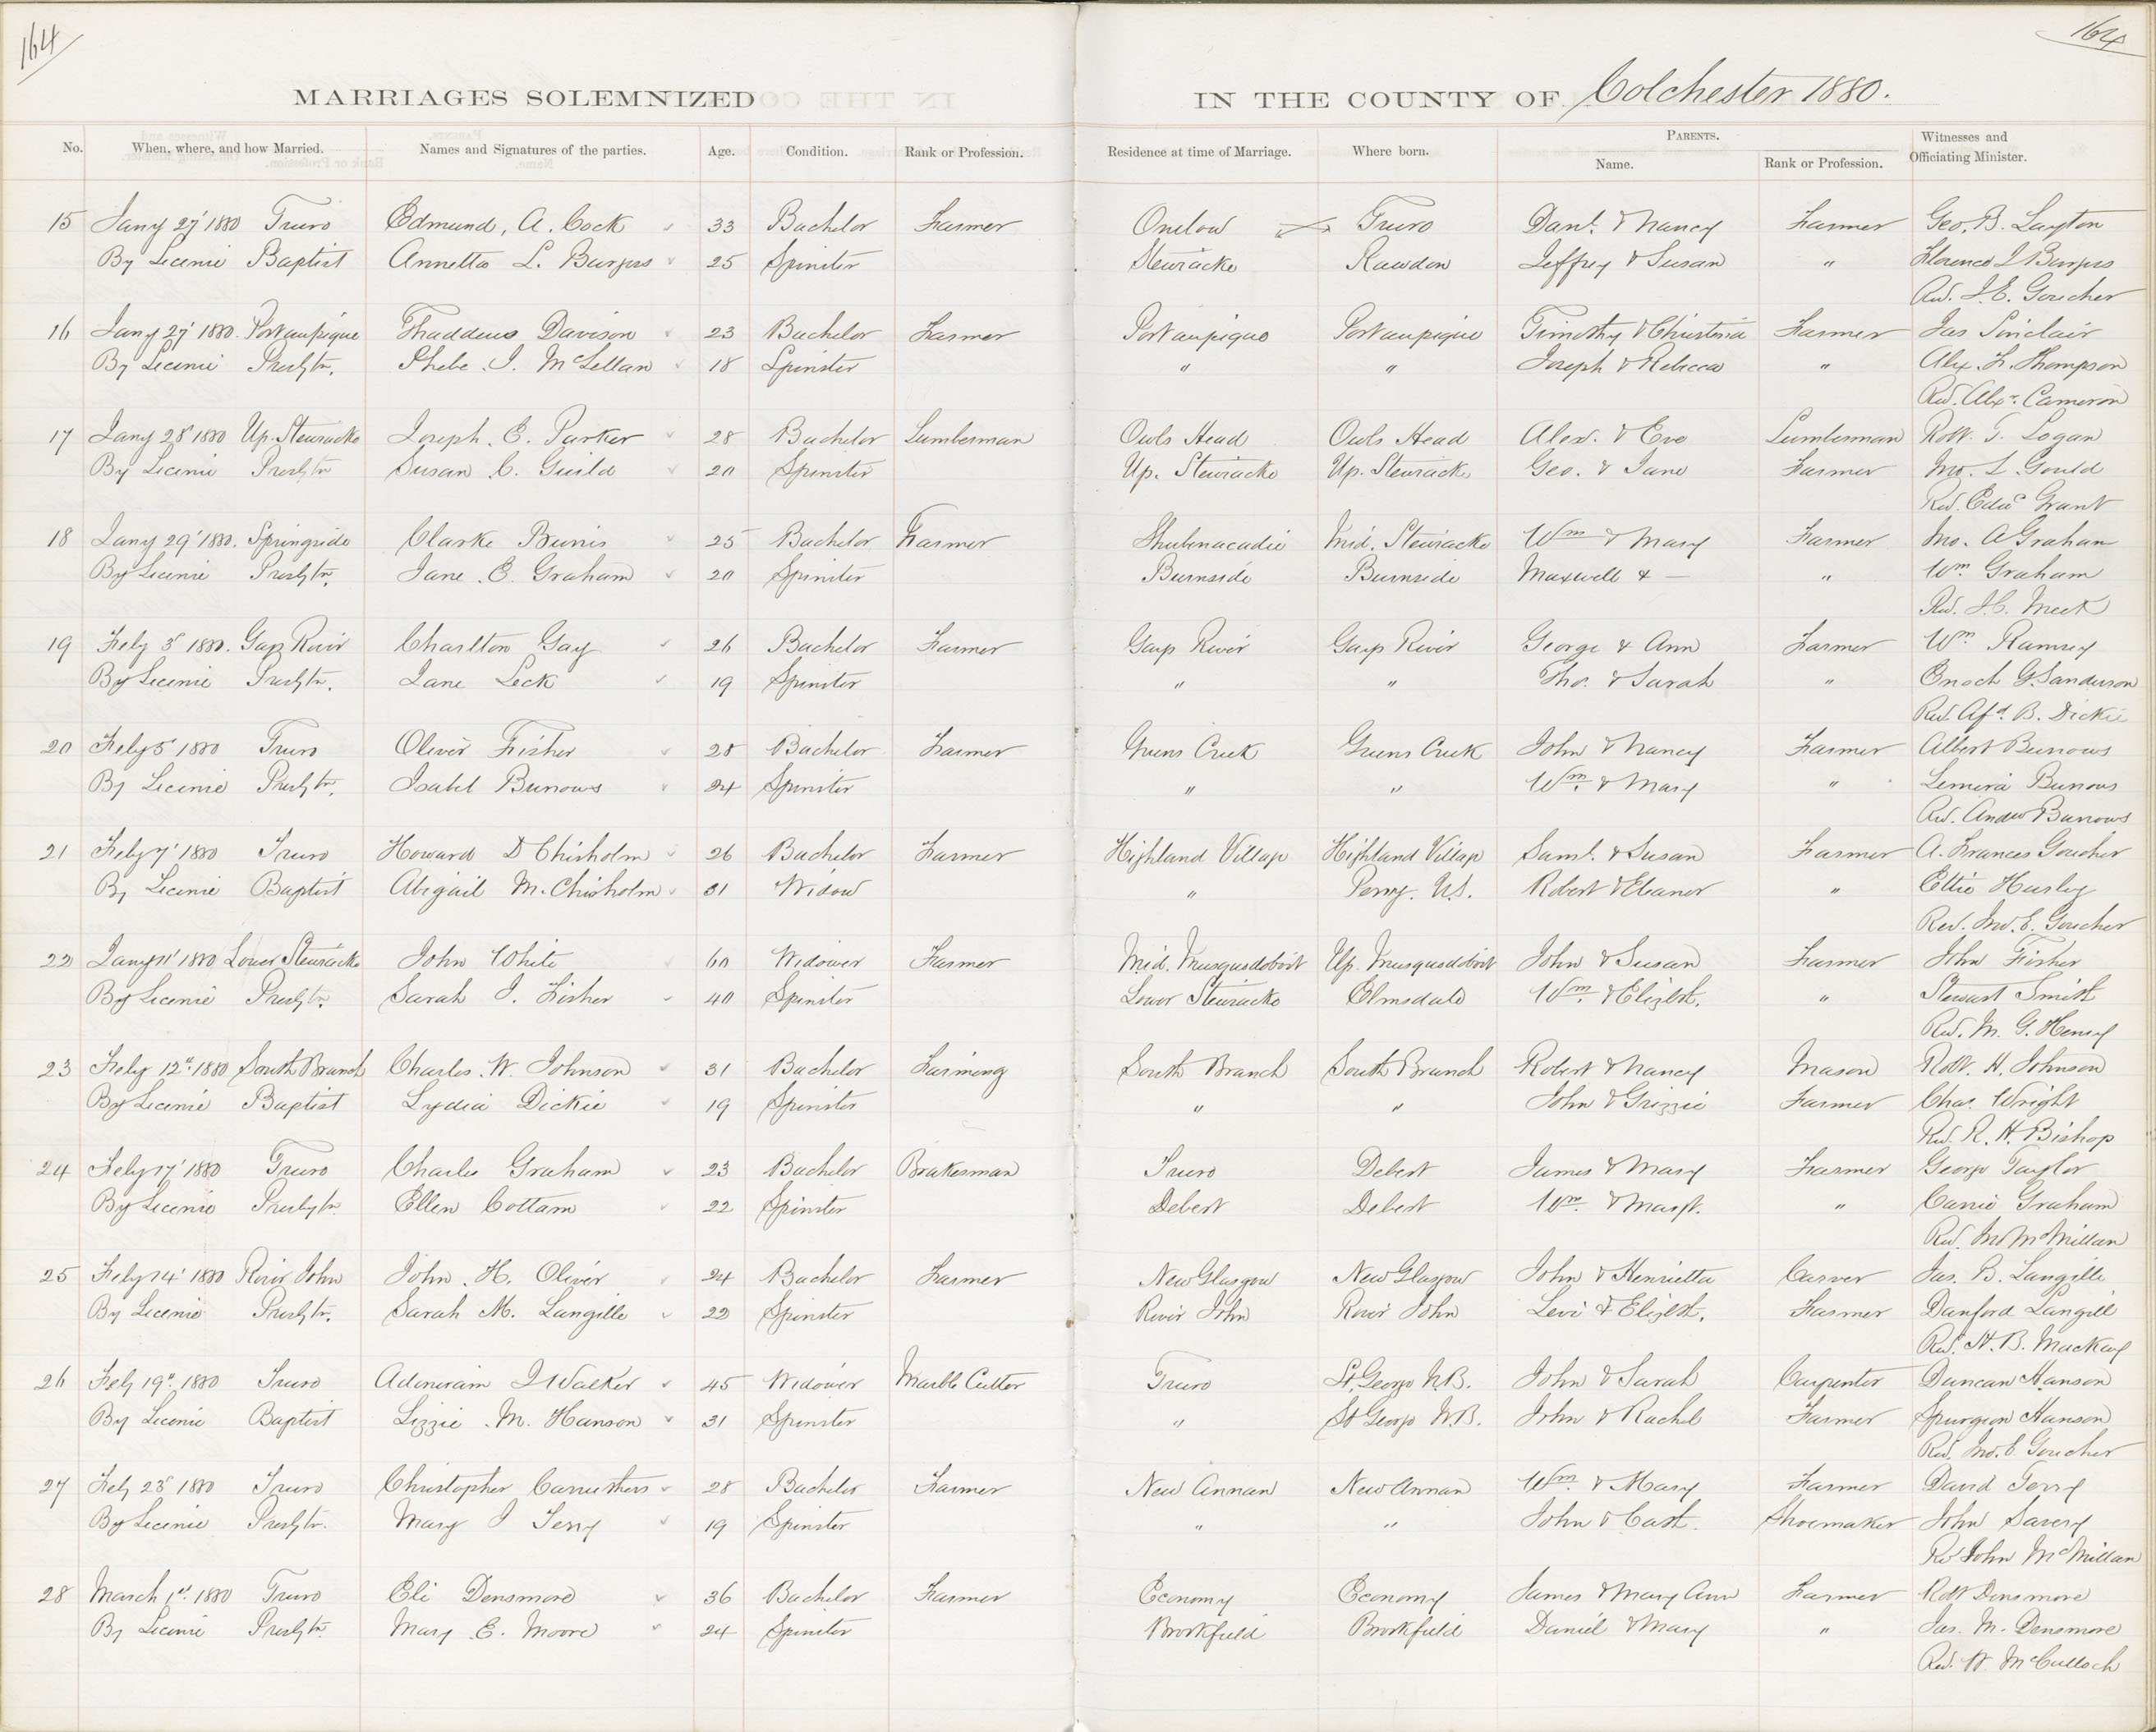 164
164
MARRIAGES SOLEMNIZED IN THE COUNTY OF Colchester 1880.
No. When, where, and how Married. Names and Signatures of the parties. Age. Condition. Rank or Profession. Residence at time of Marriage. Where born. PARENTS. Name. Rank or Profession. Witnesses and Officiating Minister.
15 Jany 27' 1880 Truro Edmund, A. Cock 33 Bachelor Farmer Onslow Truro Danl. & Nancy Farmer Geo. B. Layton
By Licence Baptist Annetta L. Burgess 25 Spinster Stewiacke Rawdon Jeffrey & Susan " Florence I Burgess
Rev. J. E. Goucher
16 Jany 27' 1880. Portaupique Thaddeus Davison 23 Bachelor Farmer Portaupique Portaupique Timothy & Christina Farmer Jas Sinclair
By Licence Presbytn. Phebe. J. McLellan 18 Spinster " " Joseph & Rebecca " Alex. F. Thompson
Rev. Alexr. Cameron
17 Jany 28' 1880 Up. Stewiacke Joseph. E. Parker 28 Bachelor Lumberman Owls Head Owls Head Alex. & Eve Lumberman Robt. T. Logan
By Licence Presbytn Susan C. Guild 20 Spinster Up. Stewiacke Up. Stewiacke Geo. & Jane Farmer Jno. L. Gould
Rev. Edwd Grant
18 Jany 29' 1880. Springside Clarke Brenis 25 Bachelor Farmer Shubenacadie Mid. Stewiacke Wm & Mary Farmer Jno. A Graham
By Licence Presbytn. Jane. E. Graham 20 Spinster Burnside Burnside Maxwell & — " Wm. Graham
Rev. J. C. Meek
19 Feby 3d 1880. Gays River Charlton Gay 26 Bachelor Farmer Gays River Gays River George & Ann Farmer Wm Ramsey
By Licence Presbytn. Jane Leck 19 Spinster " " Thos. & Sarah " Enoch G. Sanderson
Rev. Afd. B. Dickie
20 Feby 5' 1880 Truro Oliver Fisher 28 Bachelor Farmer Greens Creek Greens Creek John & Nancy Farmer Albert Burrows
By Licence Presbytn. Isabel Burrows 24 Spinster " " Wm. & Mary " Burrows
Rev. Andw Burrows
21 Feby 7' 1880 Truro Howard D Chisholm 26 Bachelor Farmer Highland Village Highland Village Saml. & Susan Farmer A. Frances Goucher
By Licence Baptist Abigail M. Chisholm 31 Widow " Perry. U.S. Robert & Eleanor " Ettie Hurley
Rev. Jno. E. Goucher
22 Jany 11' 1880 Lower Stewiacke John White 60 Widower Farmer Mid. Musquodoboit Up. Musquodoboit John & Susan Farmer John Fisher
By Licence Presbytn. Sarah J. Fisher 40 Spinster Lower Stewiacke Elmsdale Wm. & Elizbt. " Stewart Smith
Rev. M. G. Henry
23 Feby 12th 1880 South Branch Charles. W. Johnson 31 Bachelor Farming South Branch South Branch Robert & Nancy Mason Robt. H. Johnson
By Licence Baptist Lydia Dickie 19 Spinster " " John & Grizzie Farmer Chas. Wright
Rev. R. H. Bishop
24 Feby 17' 1880 Truro Charles Graham 23 Bachelor Brakesman Truro Debert James & Mary Farmer George Taylor
By Licence Presbytn Ellen Cottam 22 Spinster Debert Debert Wm. & Margt. " Carrie Graham
Rev. Jno McMillan
25 Feby 14' 1880 River John John. H. Oliver 24 Bachelor Farmer New Glasgow New Glasgow John & Henrietta Carver Jas. B. Langille
By Licence Presbytn. Sarah M. Langille 22 Spinster River John River John Levi & Elizbt. Farmer Danford Langill
Rev. H. B. Mackay
26 Feby 19th 1880 Truro Adoniram J Walker 45 Widower Marble Cutter Truro St. George N.B. John & Sarah Carpenter Duncan Hanson
By Licence Baptist Lizzie. M. Hanson 31 Spinster " St George N.B. John & Rachel Farmer Spurgeon Hanson
Rev. Jno. E Goucher
27 Feby 23d 1880 Truro Christopher Carruthers 28 Bachelor Farmer New Annan New Annan Wm. & Mary Farmer David Terry
By Licence Presbytn. Mary J Terry 19 Spinster " " John & Cast. Shoemaker John Savery
Rev John McMillan
28 March 1st 1880 Truro Eli Densmore 36 Bachelor Farmer Economy Economy James & Mary Ann Farmer Robt Densmore
By Licence Presbytn. Mary E. Moore 24 Spinster Brookfield Brookfield Daniel & Mary " Jas. M. Densmore
Rev. W McCulloch